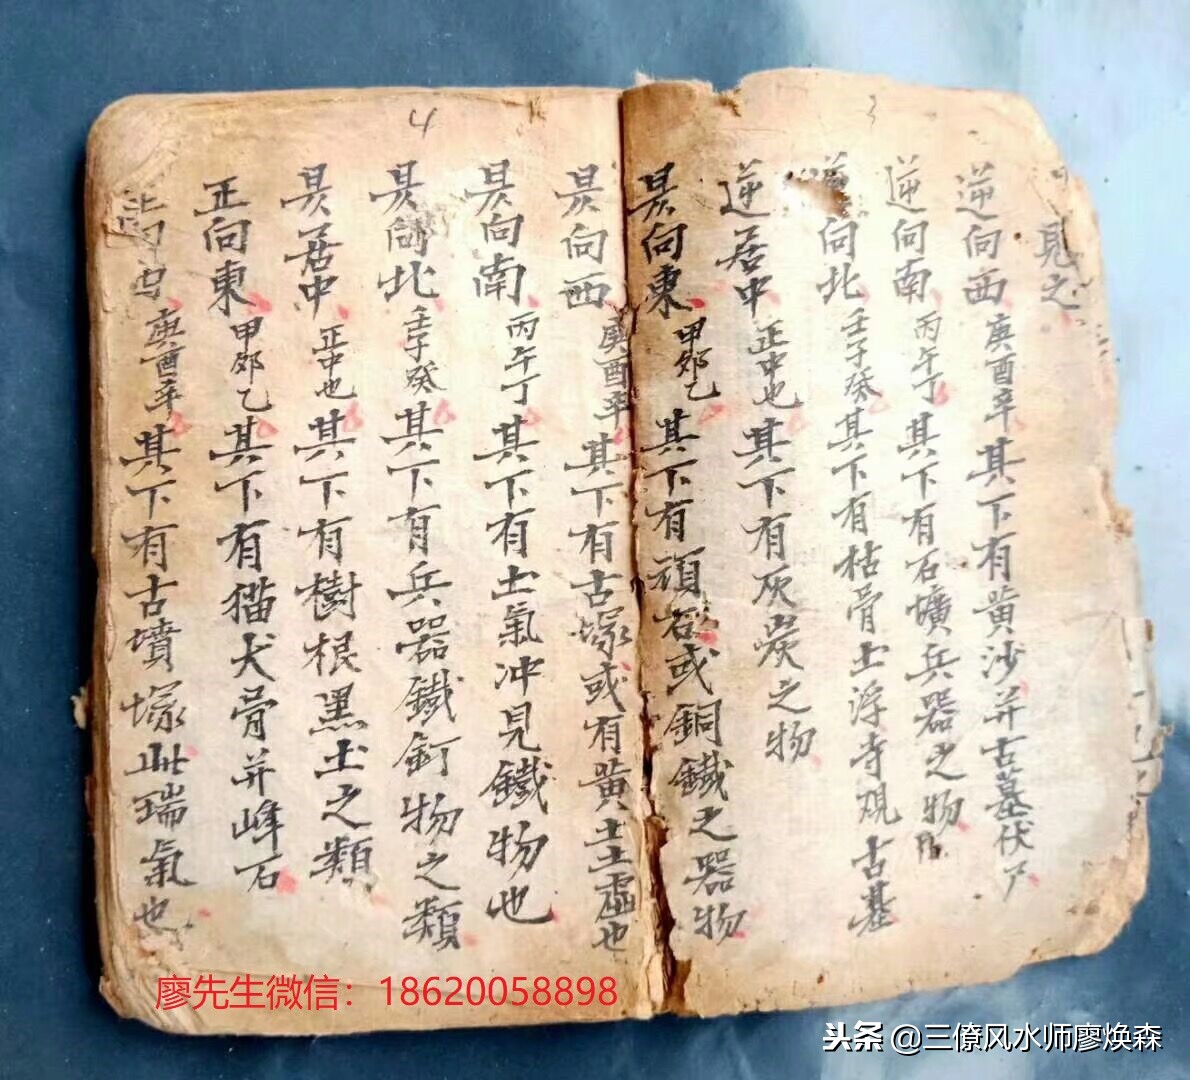 3
見之
逆向西庚酉辛其下有黃沙并古墓伏尸
逆向南丙午丁其下有石壙兵器之物
向北壬子癸其下有枯骨土浮寺观古墓
逆居中正中也其下有灰炭之物
昗向東甲夘乙其下有頑石或銅鐵之器物
4
昗向西庚酉辛其下有古塚或有黃土虛也
昗向南丙午丁其下有土氣冲見鐵物也
昗向北壬子癸其下有兵器鐵釘物之類
昗居中正中也其下有樹根黑土之類
正向東甲夘乙其下有猫犬骨并峰石
向西庚酉辛其下有古墳塚此瑞氣也
廖先生微信：18620058898
头条 @三僚风水师廖焕森